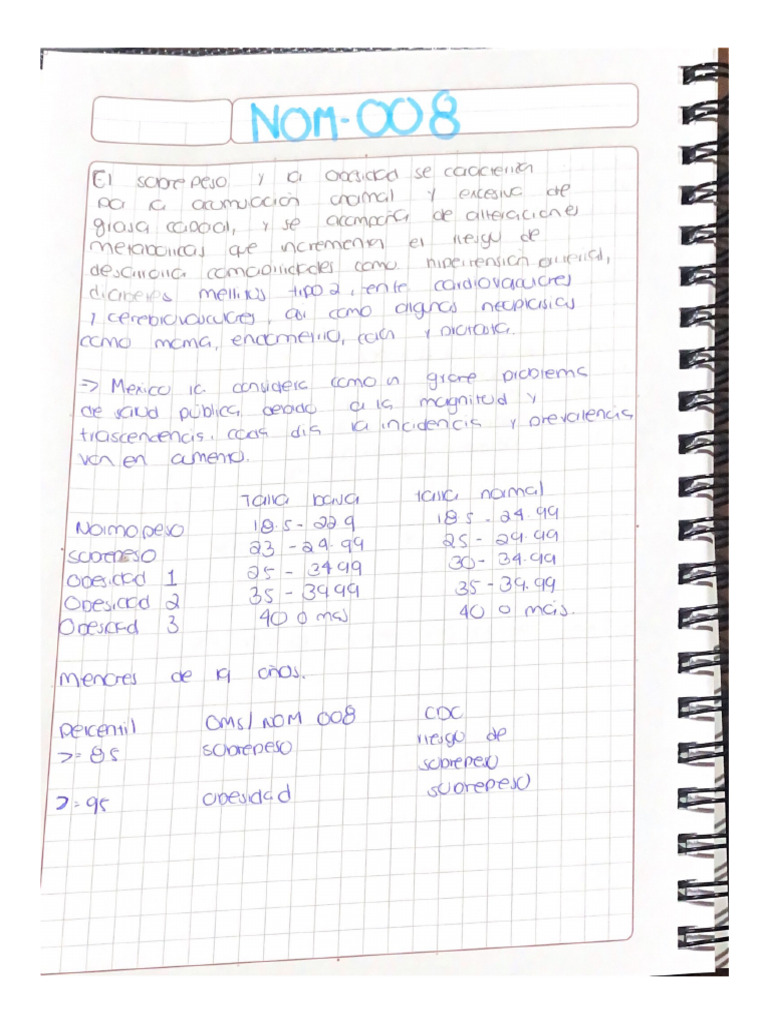 NOM-008
El sobrepeso y la obesidad se caracteriza
por la acumulación anormal y excesiva de
grasa corporal, y se acompaña de alteraciones
metabolicas que incrementan el riesgo de
desarrollar comorbilidades como hipertensión arterial,
diabetes mellitus tipo 2, enfe cardiovasculares
y cerebrovasculares, asi como algunas neoplasias
como mama, endometrio, colon y prostata.
=> Mexico la considera como un grave problema
de salud pública debido a la magnitud y
trascendencia, cada dia la incidencia y prevalencia
van en aumento.
Talla baja Talla normal
Normopeso 18.5 - 22.9 18.5 - 24.99
sobrepeso 23 - 24.99 25 - 29.99
Obesidad 1 25 - 34.99 30 - 34.99
Obesidad 2 35 - 39.99 35 - 39.99
Obesidad 3 40 o mas 40 o más.
Menores de 19 años.
percentil OMS/NOM 008 CDC
>= 85 sobrepeso riesgo de
sobrepeso
>= 95 obesidad sobrepeso